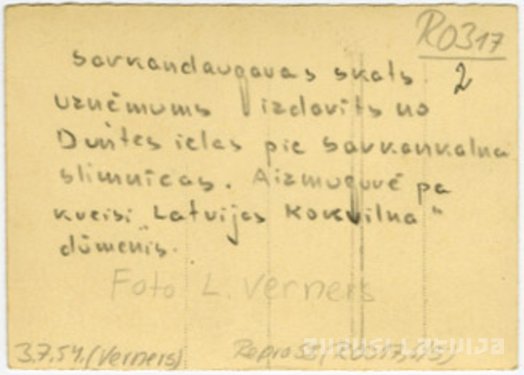 RO317
2
Sarkandaugavas skats.
Uzņēmums izdarīts no
Duntes ielas pie Sarkankalna
slimnīcas. Aizmugurē pa
kreisi "Latvijas Kokvilna"
dūmenis.
Foto L. Verners
3.7.54. (Verners)
zudusi latvija